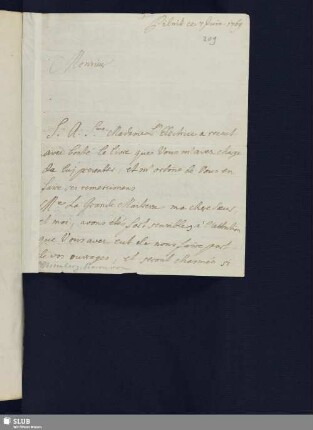 ce 7 Juin 1769
209
Monsieur
S. A. S. Madame L'Electrice a recut
avec bonté le livre que Vous m'avez chargé
de lui presenter, et m'ordone de Vous en
faire ses remercimens
La Grande Maitresse ma chere sœur
et moi, avons étés fort sensibles à l'attention
que Vous avez eut de nous faire part
de vos ouvrages, et seront charmés si
SLUB